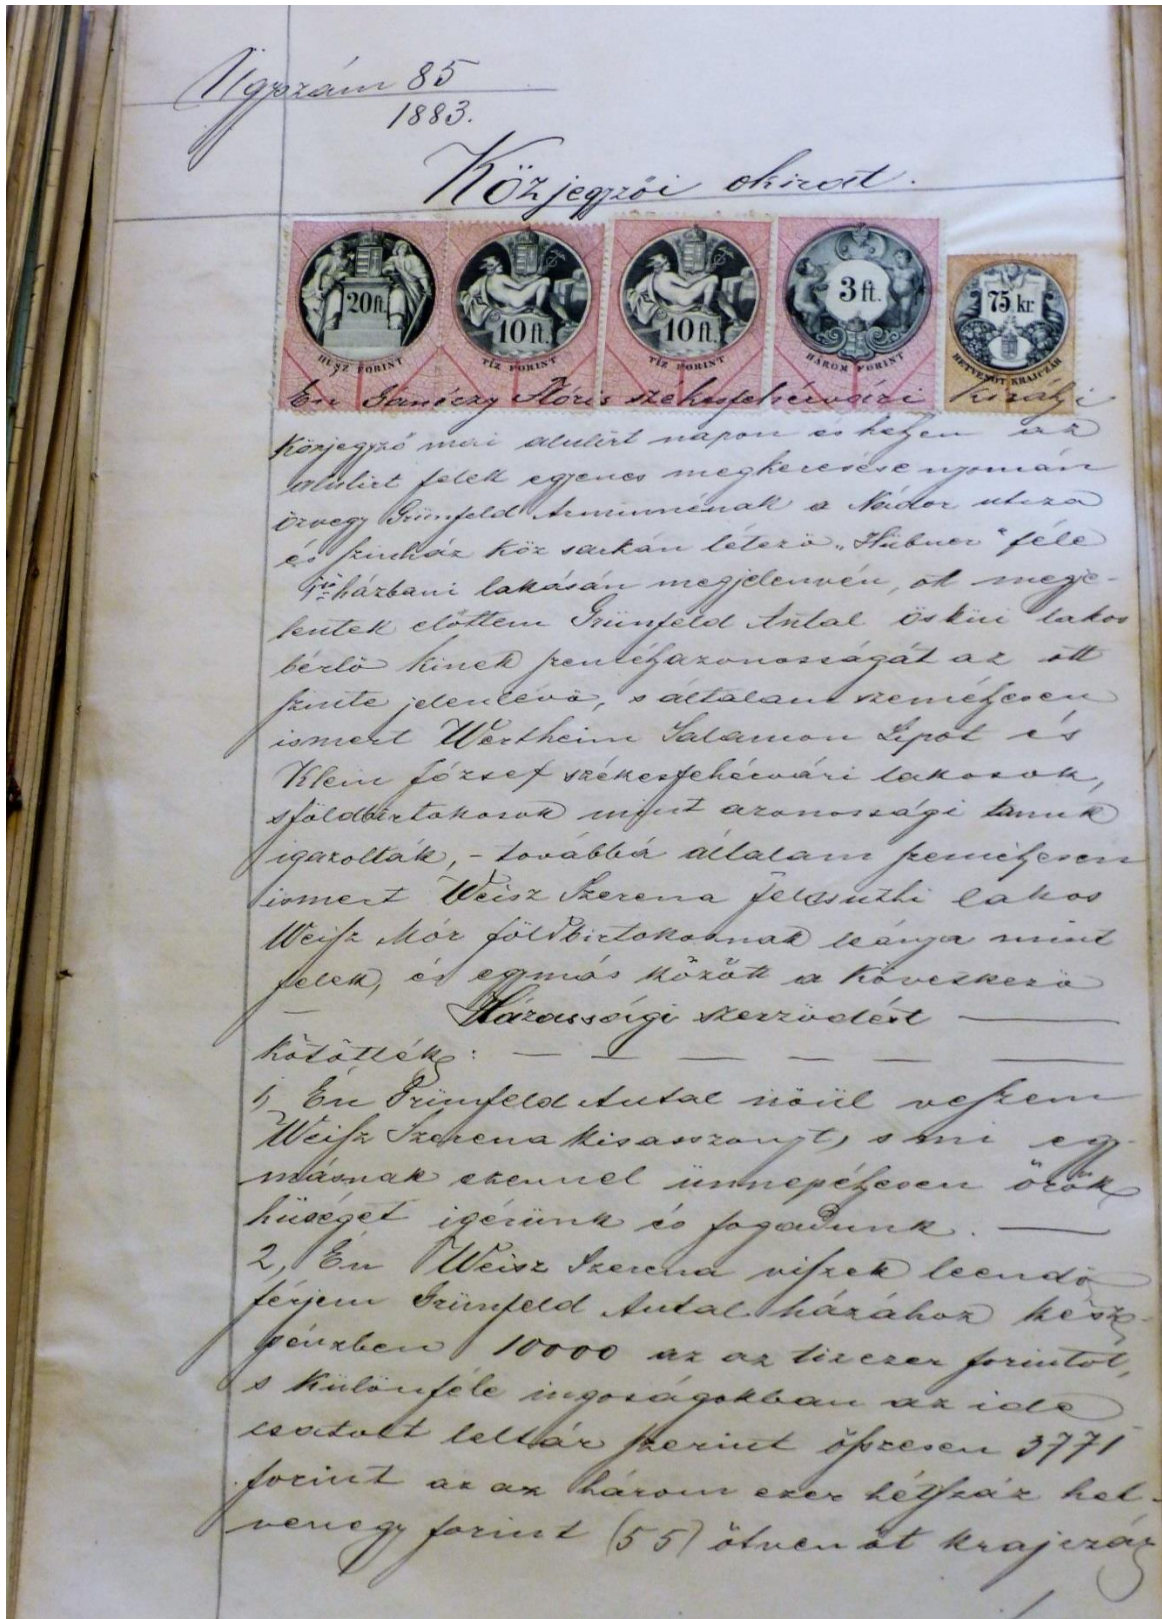 Ügyszám 85
1883.
Közjegyzői okirat.
20 ft. 10 ft. 10 ft. 3 ft. 75 kr.
HUSZ FORINT TIZ FORINT TIZ FORINT HÁROM FORINT HETVENÖT KRAJCZÁR
Én Móris székesfehérvári királyi
közjegyző mai alulirt napon és helyen az
alulirt felek egyenes megkeresése nyomán
özvegy Grünfeld Árminnénak a Nádor utcza
és szinház köz sarkán létező „Hübner" féle
házbani lakásán megjelenvén, ott megje-
lentek előttem Grünfeld Antal öskui lakos
bérlő kinek személyazonosságát az ott
szinte jelenlévő, s általam személyesen
ismert Wertheim Salamon Lipot és
Klein József székesfehérvári lakosok,
s földbirtokosok mint azonossági tanuk
igazolták, - továbbá általam személyesen
ismert Weisz Szerena felcsuthi lakos
Weisz Mór földbirtokosnak leánya mint
felek, és egymás között a következő
Házassági szerződést
kötötték:
1, Én Grünfeld Antal nőül veszem
Weisz Szerena kisasszonyt, s mi egy-
másnak ezennel ünnepélyesen örök
hüséget igérünk és fogadunk.
2, Én Weisz Szerena viszek leendő
férjem Grünfeld Antal házához kész-
pénzben 10000 az az tizezer forintot,
s különféle ingoságokban az ide
csatolt leltár szerint összesen 3771
forint az az három ezer hétszáz het-
venegy forint (55) ötven öt krajczár